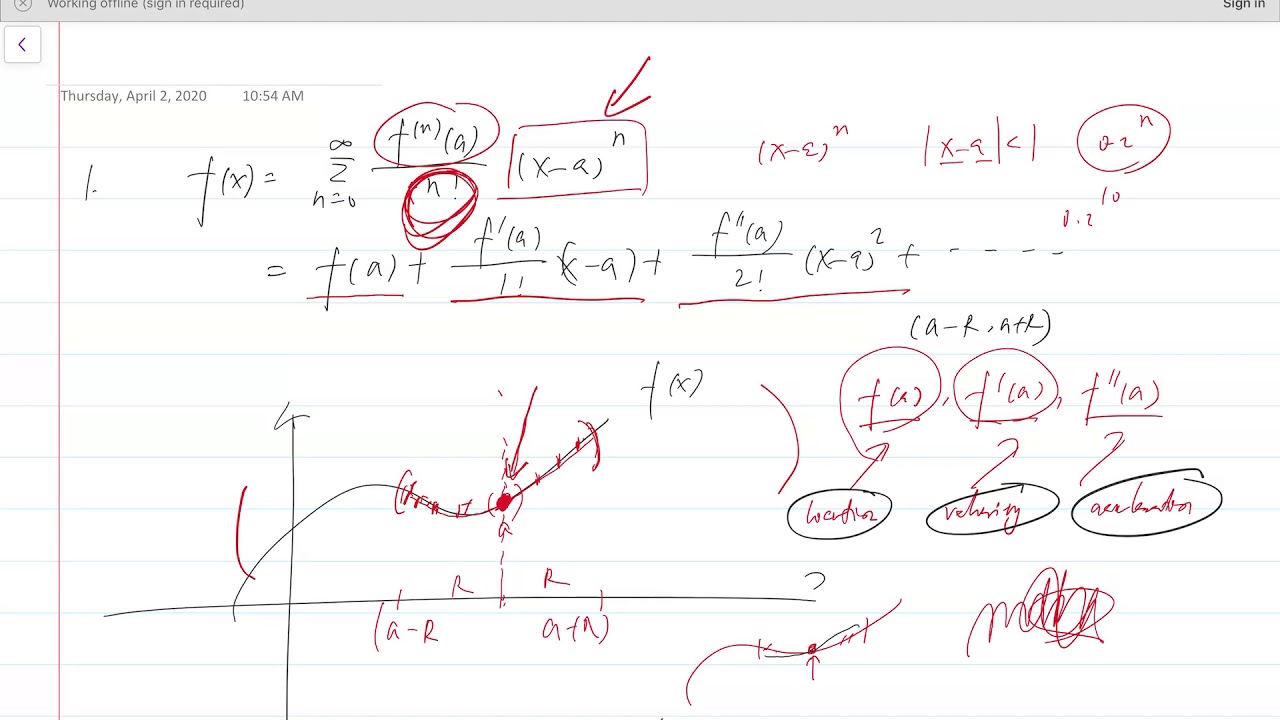 Working offline (sign in required)
Sign in
Thursday, April 2, 2020 10:54 AM
1. f(x) = ∞ Σ n=0 f⁽ⁿ⁾(a) / n! (x-a)ⁿ
(x-a)ⁿ |x-a|<1 0.2ⁿ
0.2¹⁰
= f(a) + f'(a) / 1! (x-a) + f''(a) / 2! (x-a)² + - - - -
(a-R, a+R)
f(x)
f(a), f'(a), f''(a)
location velocity acceleration
a
R R
(a-R a+R)